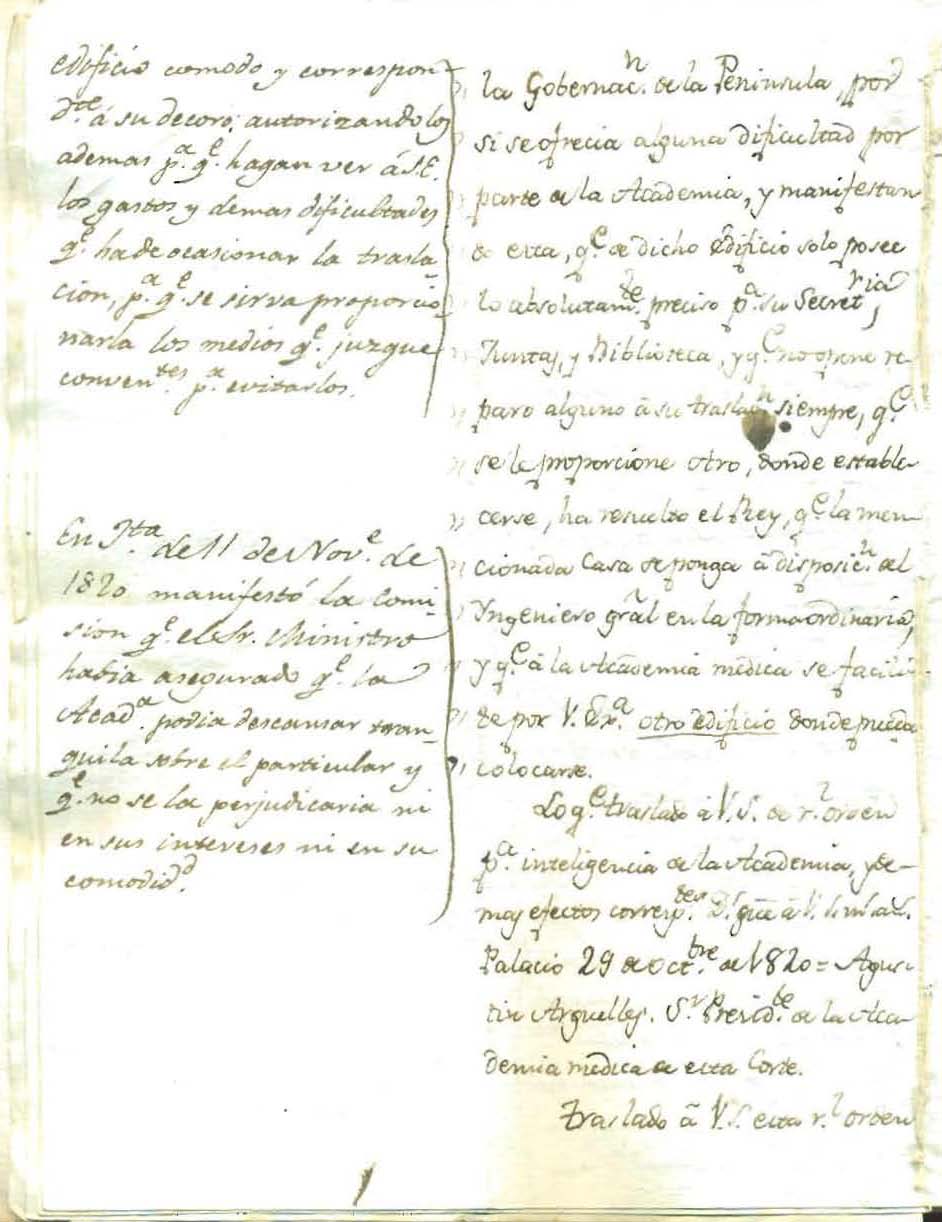 edificio comodo y correspon-
d.te á su decoro; autorizandolos
ademas p.a q.e hagan ver á S.E.
los gastos y demas dificultades
q.e ha de ocasionar la trasla-
cion, p.a q.e se sirva proporcio
narla los medios q.e juzgue
conven.tes p.a evitarlos.
En J.ta de 11 de Nov.e de
1820 manifestó la comi-
sion q.e el Sr. Ministro
habia asegurado q.e la
Acad.a podia descansar tran-
quila sobre el particular y
q.e no se la perjudicaria ni
en sus intereses ni en su
comodid.d
la Gobernac.n de la Peninsula, por
si se ofrecia alguna dificultad por
parte de la Academia, y manifestan
do esta, q.e de dicho edificio solo posee
lo absolutam.te preciso p.a su Secret.ria,
Juntas, y Biblioteca, y q.e no opone re-
paro alguno á su traslac.n siempre, q.e
se le proporcione otro, donde estable-
cerse, ha resuelto el Rey, q.e la men
cionada Casa se ponga á disposic.n del
Yngeniero gral en la forma ordinaria,
y q.e á la Academia médica se facili-
te por V. Ex.a otro edificio donde pueda
colocarse.
Lo q.e traslado á V. S. de r.l orden
p.a inteligencia de la Academia, y de-
mas efectos corresp.tes D.s gûe á V. S. m.s a.s.
Palacio 29 de Oct.bre de 1820 = Agus-
tin Arguelles. S.r Presid.te de la Aca-
demia médica de esta Corte.
Traslado á V. S. esta r.l orden